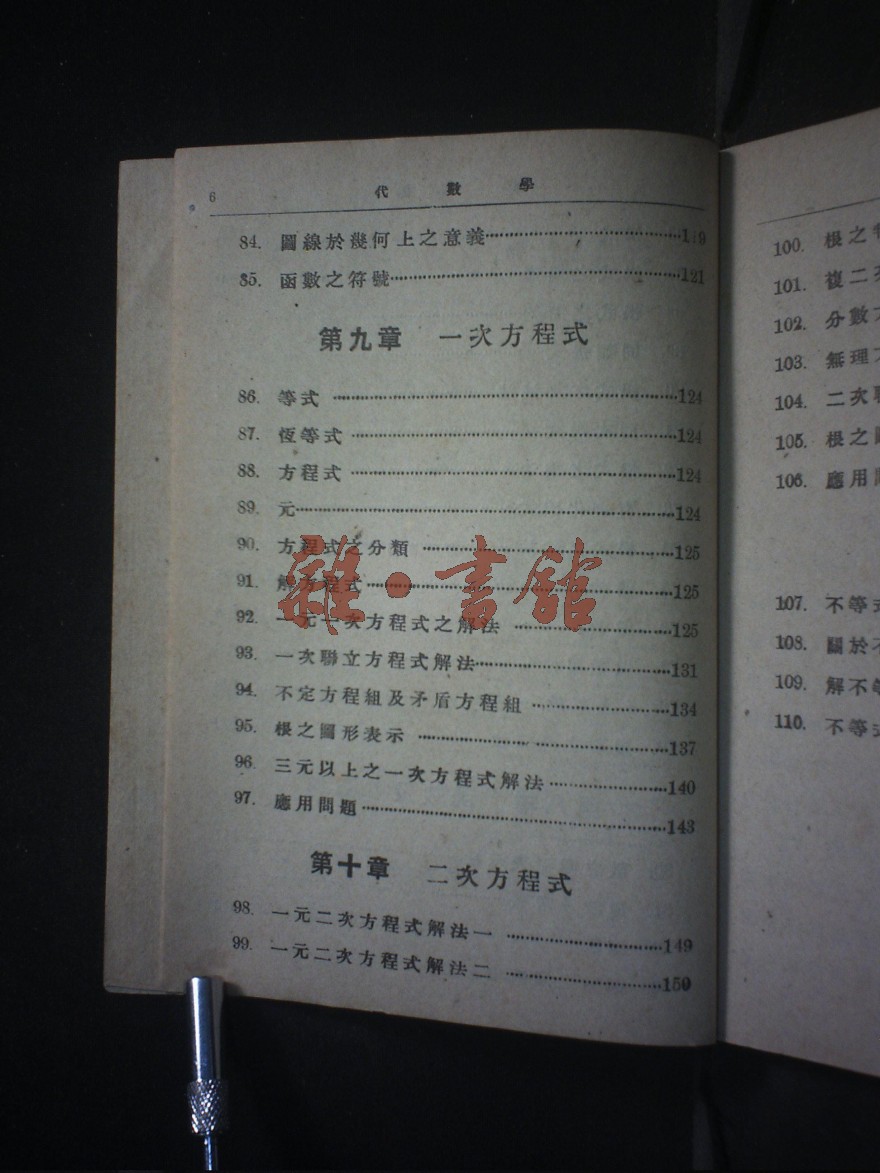 6 代數學
84. 圖線於幾何上之意義……119
85. 函數之符號……121
第九章 一次方程式
86. 等式……124
87. 恆等式……124
88. 方程式……124
89. 元……124
90. 方程式之分類……125
91. 解方程式……125
92. 一元一次方程式之解法……125
93. 一次聯立方程式解法……131
94. 不定方程組及矛盾方程組……134
95. 根之圖形表示……137
96. 三元以上之一次方程式解法……140
97. 應用問題……143
第十章 二次方程式
98. 一元二次方程式解法一……149
99. 一元二次方程式解法二……150
雜·書館
100. 根之
101. 複二
102. 分數
103. 無理
104. 二次
105. 根之
106. 應用
107. 不等式
108. 關於
109. 解不
110. 不等